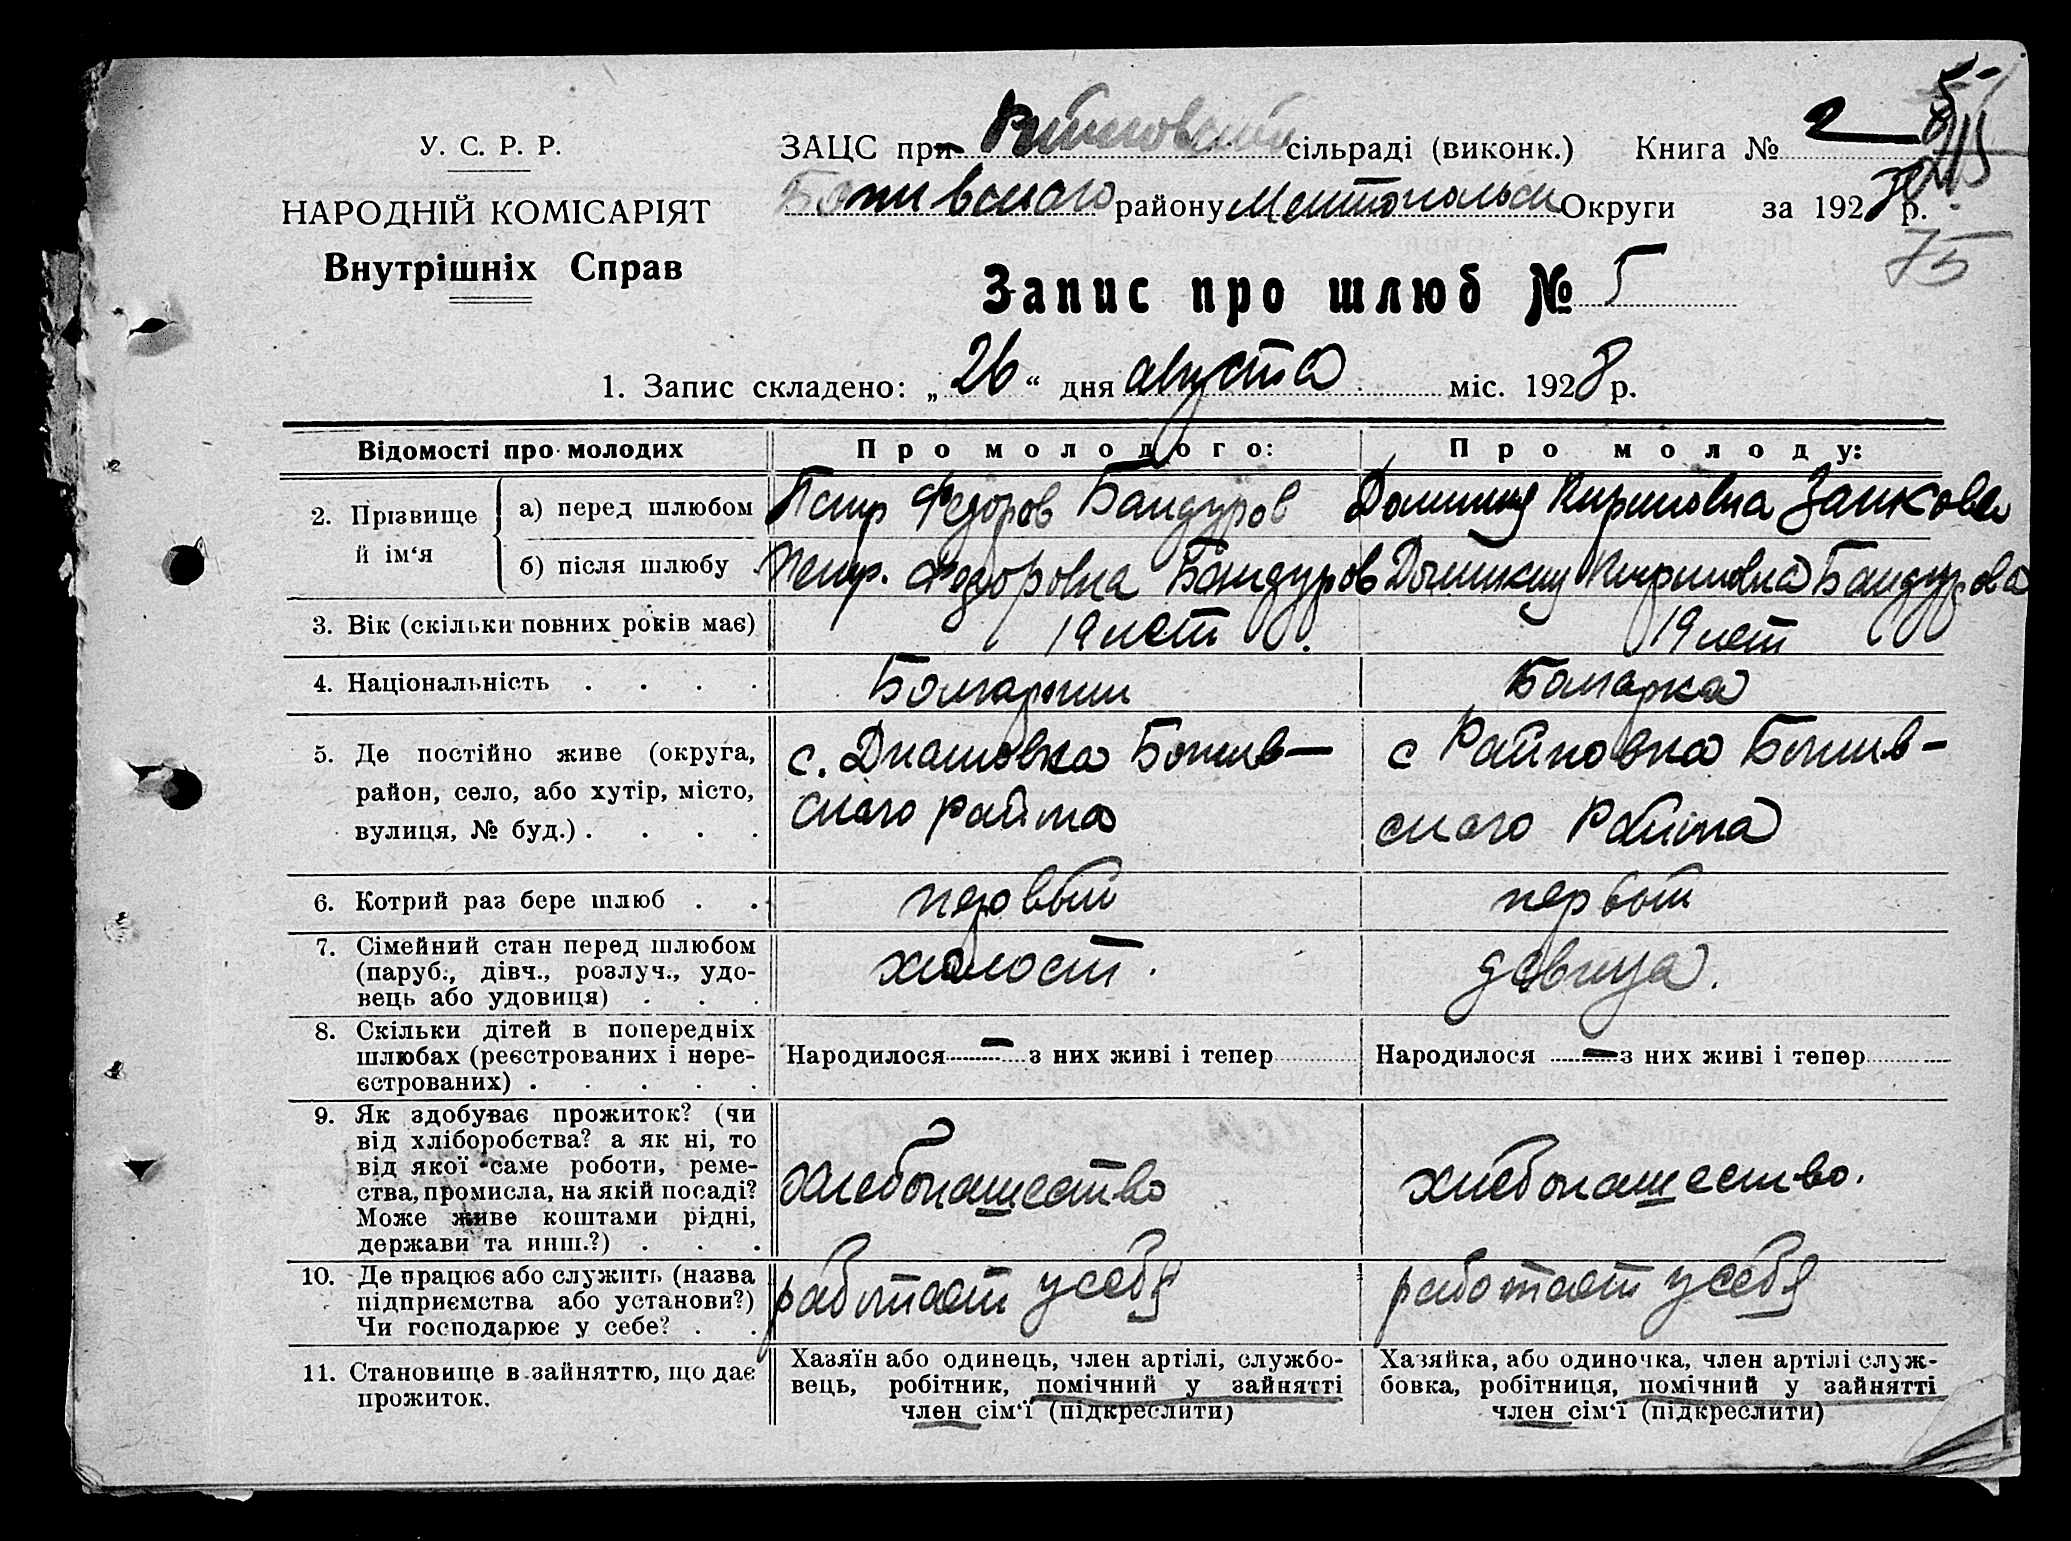 У. С. Р. Р.
НАРОДНІЙ КОМІСАРІЯТ
Внутрішніх Справ
ЗАЦС при сільраді (виконк.) Книга № 2
району Округи за 1928 р.
75
Запис про шлюб № 5
1. Запис складено: „26“ дня августа міс. 1928 р.
Відомості про молодих Про молодого: Про молоду:
2. Прізвище й ім‘я
а) перед шлюбом Петр Федоров Бандуров Кириловна
б) після шлюбу Петр. Бандуров Кириловна Бандурова
3. Вік (скільки повних років має) 19 лет 19 лет
4. Національність . . . . Болгарин Болгарка
5. Де постійно живе (округа,
район, село, або хутір, місто,
вулиця, № буд.) . . . .
с. Ботив-
ского района
с Райновка Ботив-
ского Района
6. Котрий раз бере шлюб . . первый первый
7. Сімейний стан перед шлюбом
(паруб., дівч., розлуч., удо-
вець або удовиця) . . .
холост. девица.
8. Скільки дітей в попередніх
шлюбах (реєстрованих і нере-
єстрованих) . . . . .
Народилося — з них живі і тепер
Народилося — з них живі і тепер
9. Як здобуває прожиток? (чи
від хліборобства? а як ні, то
від якої саме роботи, реме-
ства, промисла, на якій посаді?
Може живе коштами рідні,
держави та инш.?) . . .
хлебопашество хлебопашество.
10. Де працює або служить (назва
підприємства або установи?)
Чи господарює у себе? . .
работает у себя работает у себя
11. Становище в зайняттю, що дає
прожиток.
Хазяїн або одинець, член артілі, службо-
вець, робітник, помічний у зайнятті
член сім‘ї (підкреслити)
Хазяйка, або одиночка, член артілі служ-
бовка, робітниця, помічний у зайнятті
член сім‘ї (підкреслити)